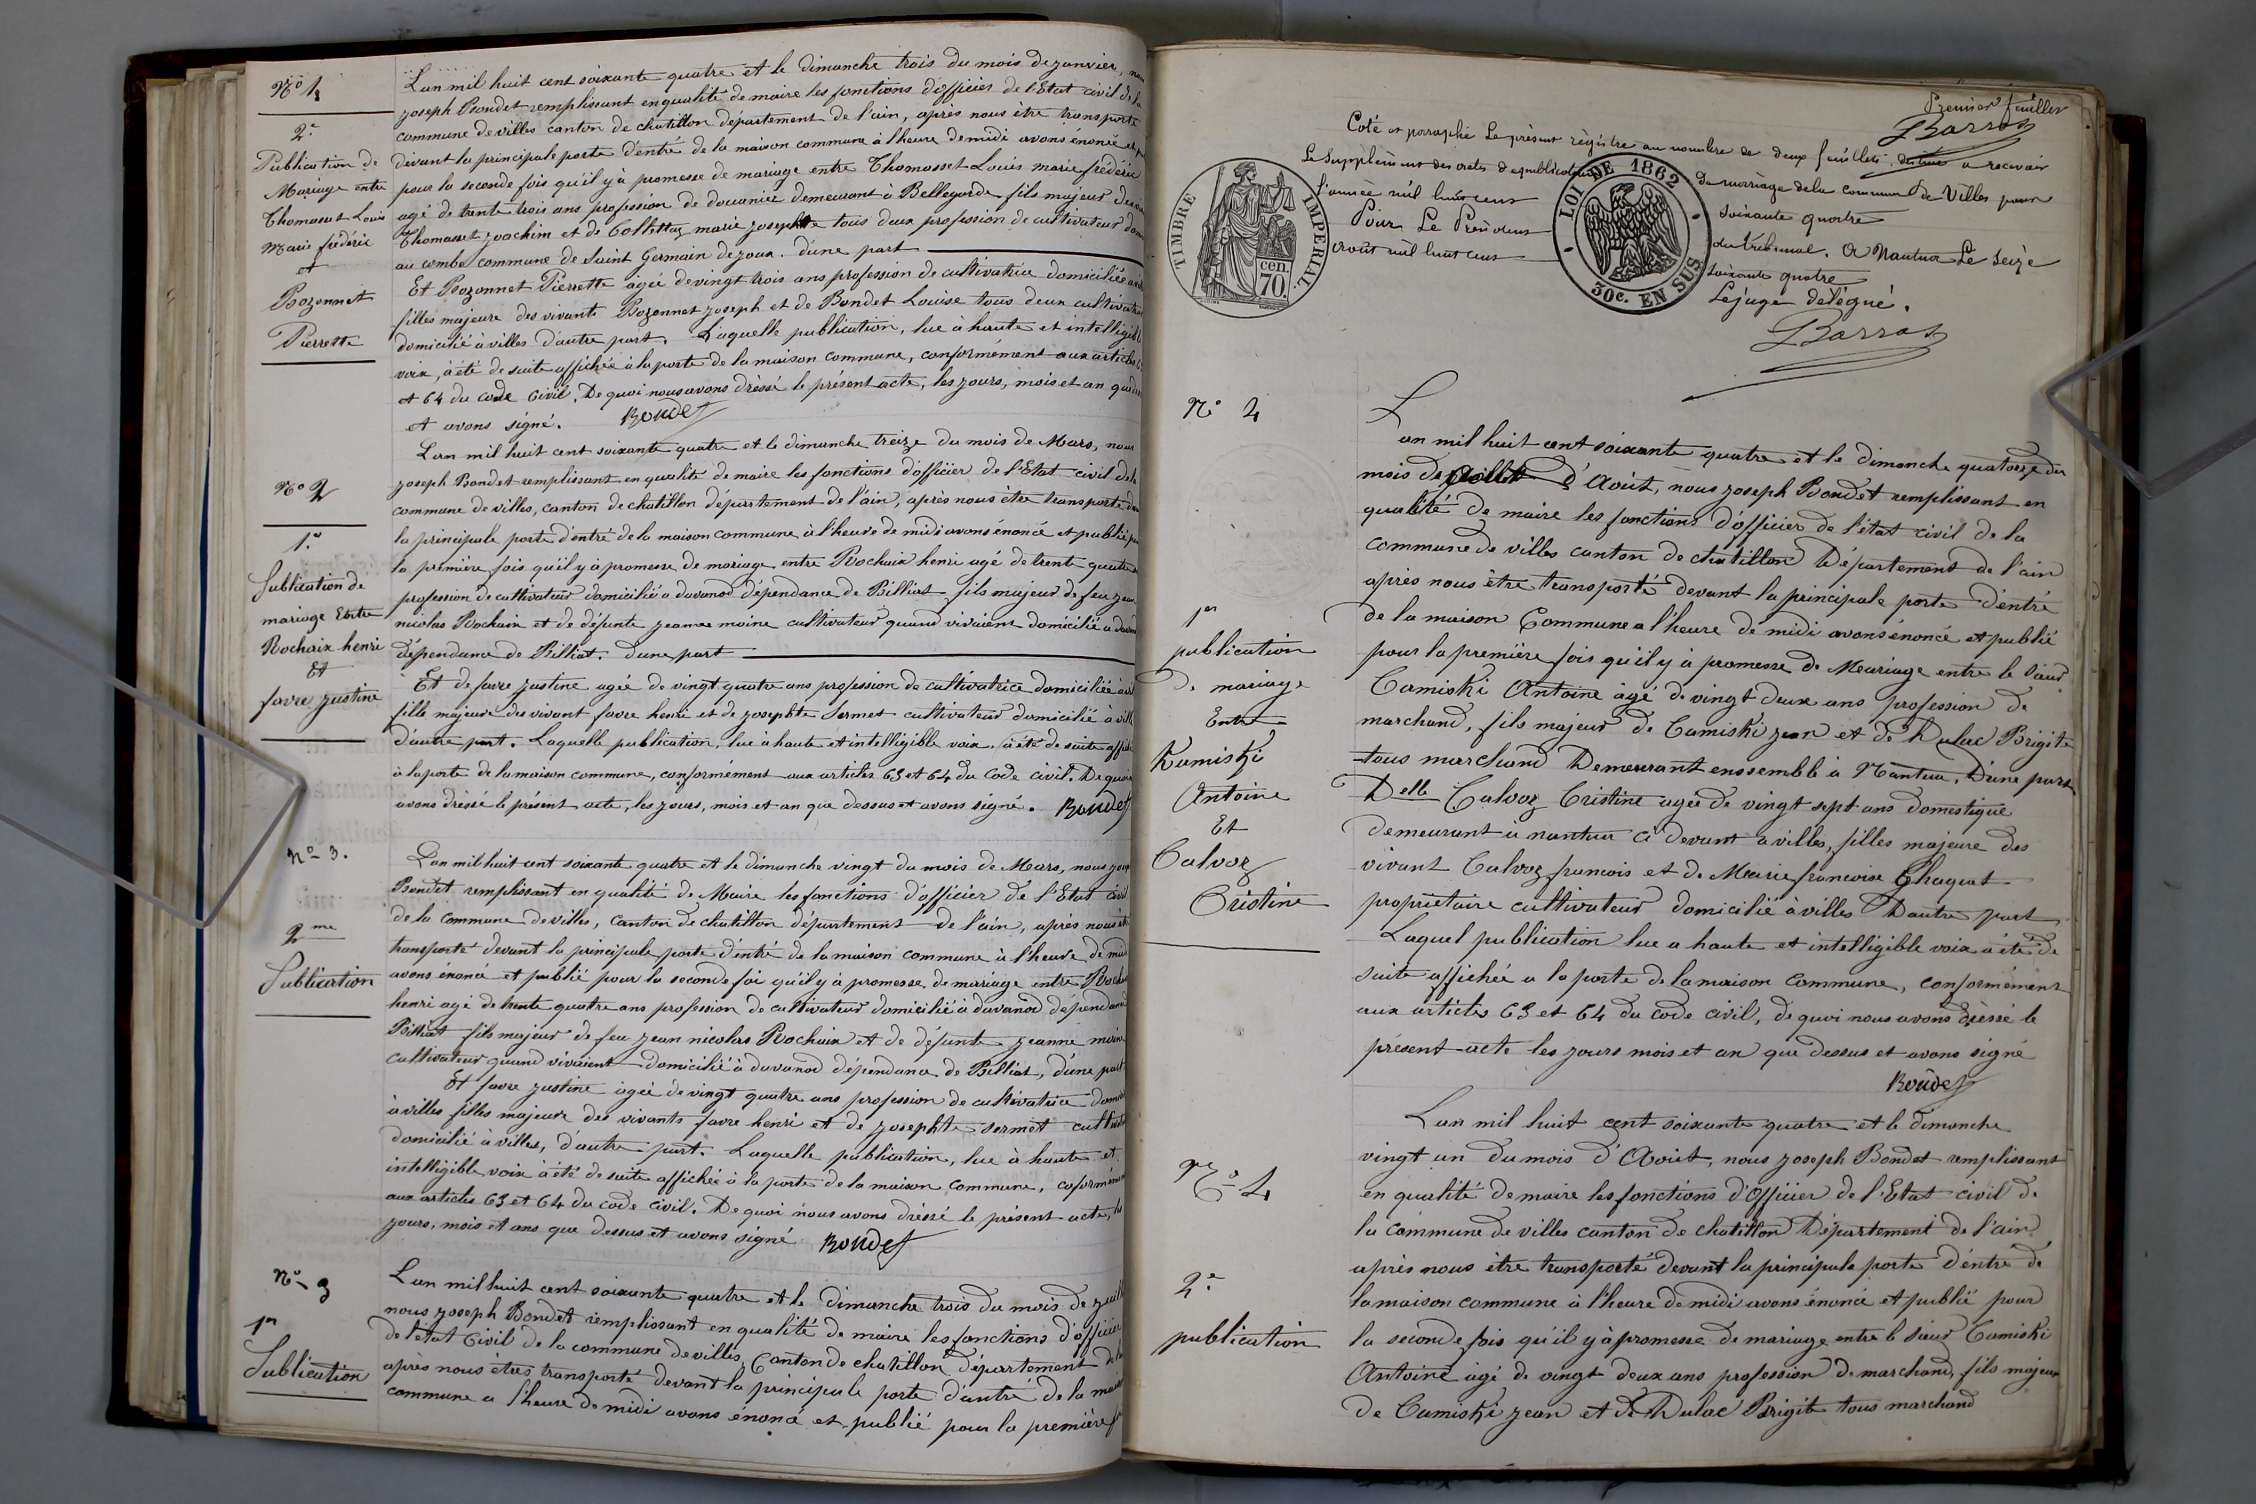 N° 1
2e
Publication de
Mariage entre
Thomasset Louis
Marie frédéric
et
Bozonnet
Pierrette
L'an mil huit cent soixante quatre et le dimanche trois du mois de janvier, nous
joseph Bondet remplissant en qualité de maire les fonctions d'officier de l'Etat civil de la
commune de villes canton de chatillon département de l'ain, après nous être transporté
devant la principale porte d'entré de la maison commune à l'heure de midi avons énoncé et
pour la seconde fois qu'il y à promesse de mariage entre Thomasset Louis marie frédéric
agé de trente trois ans profession de douanier demeurant à Bellegarde fils majeur de
Thomasset joachim et de Collettaz marie josephte tous deux profession de cultivateur
au combe commune de Saint Germain de joux. d'une part
Et Bozonnet Pierrette agée de vingt trois ans profession de cultivatrice domiciliée
filles majeure des vivants Bozonnet joseph et de Bondet Louise tous deux
domicilié à villes d'autre part. Laquelle publication, lue à haute et intelligible
voix, à été de suite affichée à la porte de la maison commune, conformément aux articles
et 64 du code Civil. De quoi nous avons dréssé le présent acte, les jours, mois et an que
et avons signé. Bondet
N° 2
1er
Publication de
mariage Entre
Rochaix henri
Et
favre justine
L'an mil huit cent soixante quatre et le dimanche treize du mois de Mars, nous
joseph Bondet remplissant en qualité de maire les fonctions d'officier de l'Etat civil de la
commune de villes, canton de chatillon département de l'ain, après nous être transporté
la principale porte d'entré de la maison commune à l'heure de midi avons énoncé et publié
la première fois qu'il y à promesse de mariage, entre Rochaix henri agé de trente quatre
profession de cultivateur domicilié à davanod dépendance de Billiat fils majeur de feu jean
nicolas Rochaix et de défunte jeanne moine cultivateur quand vivaient domicilié a
dépendance de Billiat. d'une part
Et de favre justine agée de vingt quatre ans profession de cultivatrice domiciliée
fille majeure des vivant favre henri et de josephte Sermet cultivateur domicilié à
d'autre part. Laquelle publication, lue à haute et intelligible voix, à été de suite
à la porte de la maison commune, conformément aux articles 63 et 64 du Code civil. De quoi
avons dréssé le présent acte, les jours, mois et an que dessus et avons signé. Bondet
N° 3.
2me
Publication
L'an mil huit cent soixante quatre et le dimanche vingt du mois de Mars, nous
Bondet remplissant en qualité de Maire les fonctions d'officier de l'Etat civil
de la commune de villes, canton de chatillon département de l'ain, après nous
transporté devant la principale porte d'entré de la maison commune à l'heure de
avons énoncé et publié pour la seconde foi qu'il y à promesse de mariage entre
henri agé de trente quatre ans profession de cultivateur domicilié à davanod dépendance
Billiat fils majeur de feu jean nicolas Rochaix et de défunte jeanne moine
cultivateur quand vivaient domicilié à davanod dépendance de Billiat, d'une part
Et favre justine agée de vingt quatre ans profession de cultivatrice
à villes filles majeure des vivants favre henri et de josephte sermet
domicilié à villes, d'autre part. Laquelle publication, lue à haute et
intelligible voix à été de suite affichée à la porte de la maison commune,
aux articles 63 et 64 du code civil. De quoi nous avons dréssé le présent acte, les
jours, mois et ans que dessus et avons signé Bondet
N° 3
1er
Publication
L'an mil huit cent soixante quatre et le dimanche trois du mois de
nous joseph Bondet remplissant en qualité de maire les fonctions d'officier
de l'état Civil de la commune de villes, Canton de chatillon département de
après nous être transporté devant la principale porte d'entré de la
commune a l'heure de midi avons énoncé et publié pour la première
Premier feuillet
Barras
Coté et paraphé Le présent régistre au nombre de deux feuillets, destiné a recevoir
Le Supplément des actes de publication de marriage de la commune de Villes pour
l'année mil huit cent soixante quatre
Pour Le Président du tribunal. A Nantua Le Seize
aout mil huit cent soixante quatre
Le juge délégué.
Barras
TIMBRE IMPERIAL
70 cen.
LOI DE 1862
30c. EN SUS
N° 4
1er
publication
de mariage
Entre
Kamiski
Antoine
Et
Calvoz
Cristine
L'an mil huit cent soixante quatre et le dimanche quatorze du
mois de d'Août, nous joseph Bondet remplissant en
qualité de maire les fonctions d'officier de l'état civil de la
commune de villes canton de chatillon Département de l'ain
après nous être transporté devant la principale porte d'entré
de la maison Commune a l'heure de midi avons énoncé et publié
pour la première fois qu'il y à promesse de Mariage entre le Sieur
Camiski Antoine agé de vingt deux ans profession de
marchand, fils majeur de Camiski jean et de Dulac Brigite
tous marchand Demeurant enssemble à Nantua. D'une part
Delle Calvoz Cristine agée de vingt sept ans domestique
demeurant à nantua ci devant a villes, filles majeure des
vivant Calvoz francois et de Marie francoise Chaquat
propriétaire cultivateur domicilié à villes D'autre part
Laquel publication lue a haute et intelligible voix a été de
suite affichée a la porte de la maison commune, conformément
aux articles 63 et 64 du code civil, de quoi nous avons dréssé le
présent acte les jours mois et an que dessus et avons signé
Bondet
N° 4
2e
publication
L'an mil huit cent soixante quatre et le dimanche
vingt un du mois d'Aout, nous joseph Bondet remplissant
en qualité de maire les fonctions d'Officier de l'Etat civil de
la commune de villes canton de chatillon Département de l'ain
après nous être transporté devant la principale porte d'entré de
la maison commune à l'heure de midi avons énoncé et publié pour
la seconde fois qu'il y à promesse de mariage entre le sieur Camiski
Antoine agé de vingt deux ans profession de marchand, fils majeur
de Camiski jean et de Dulac Brigite tous marchand